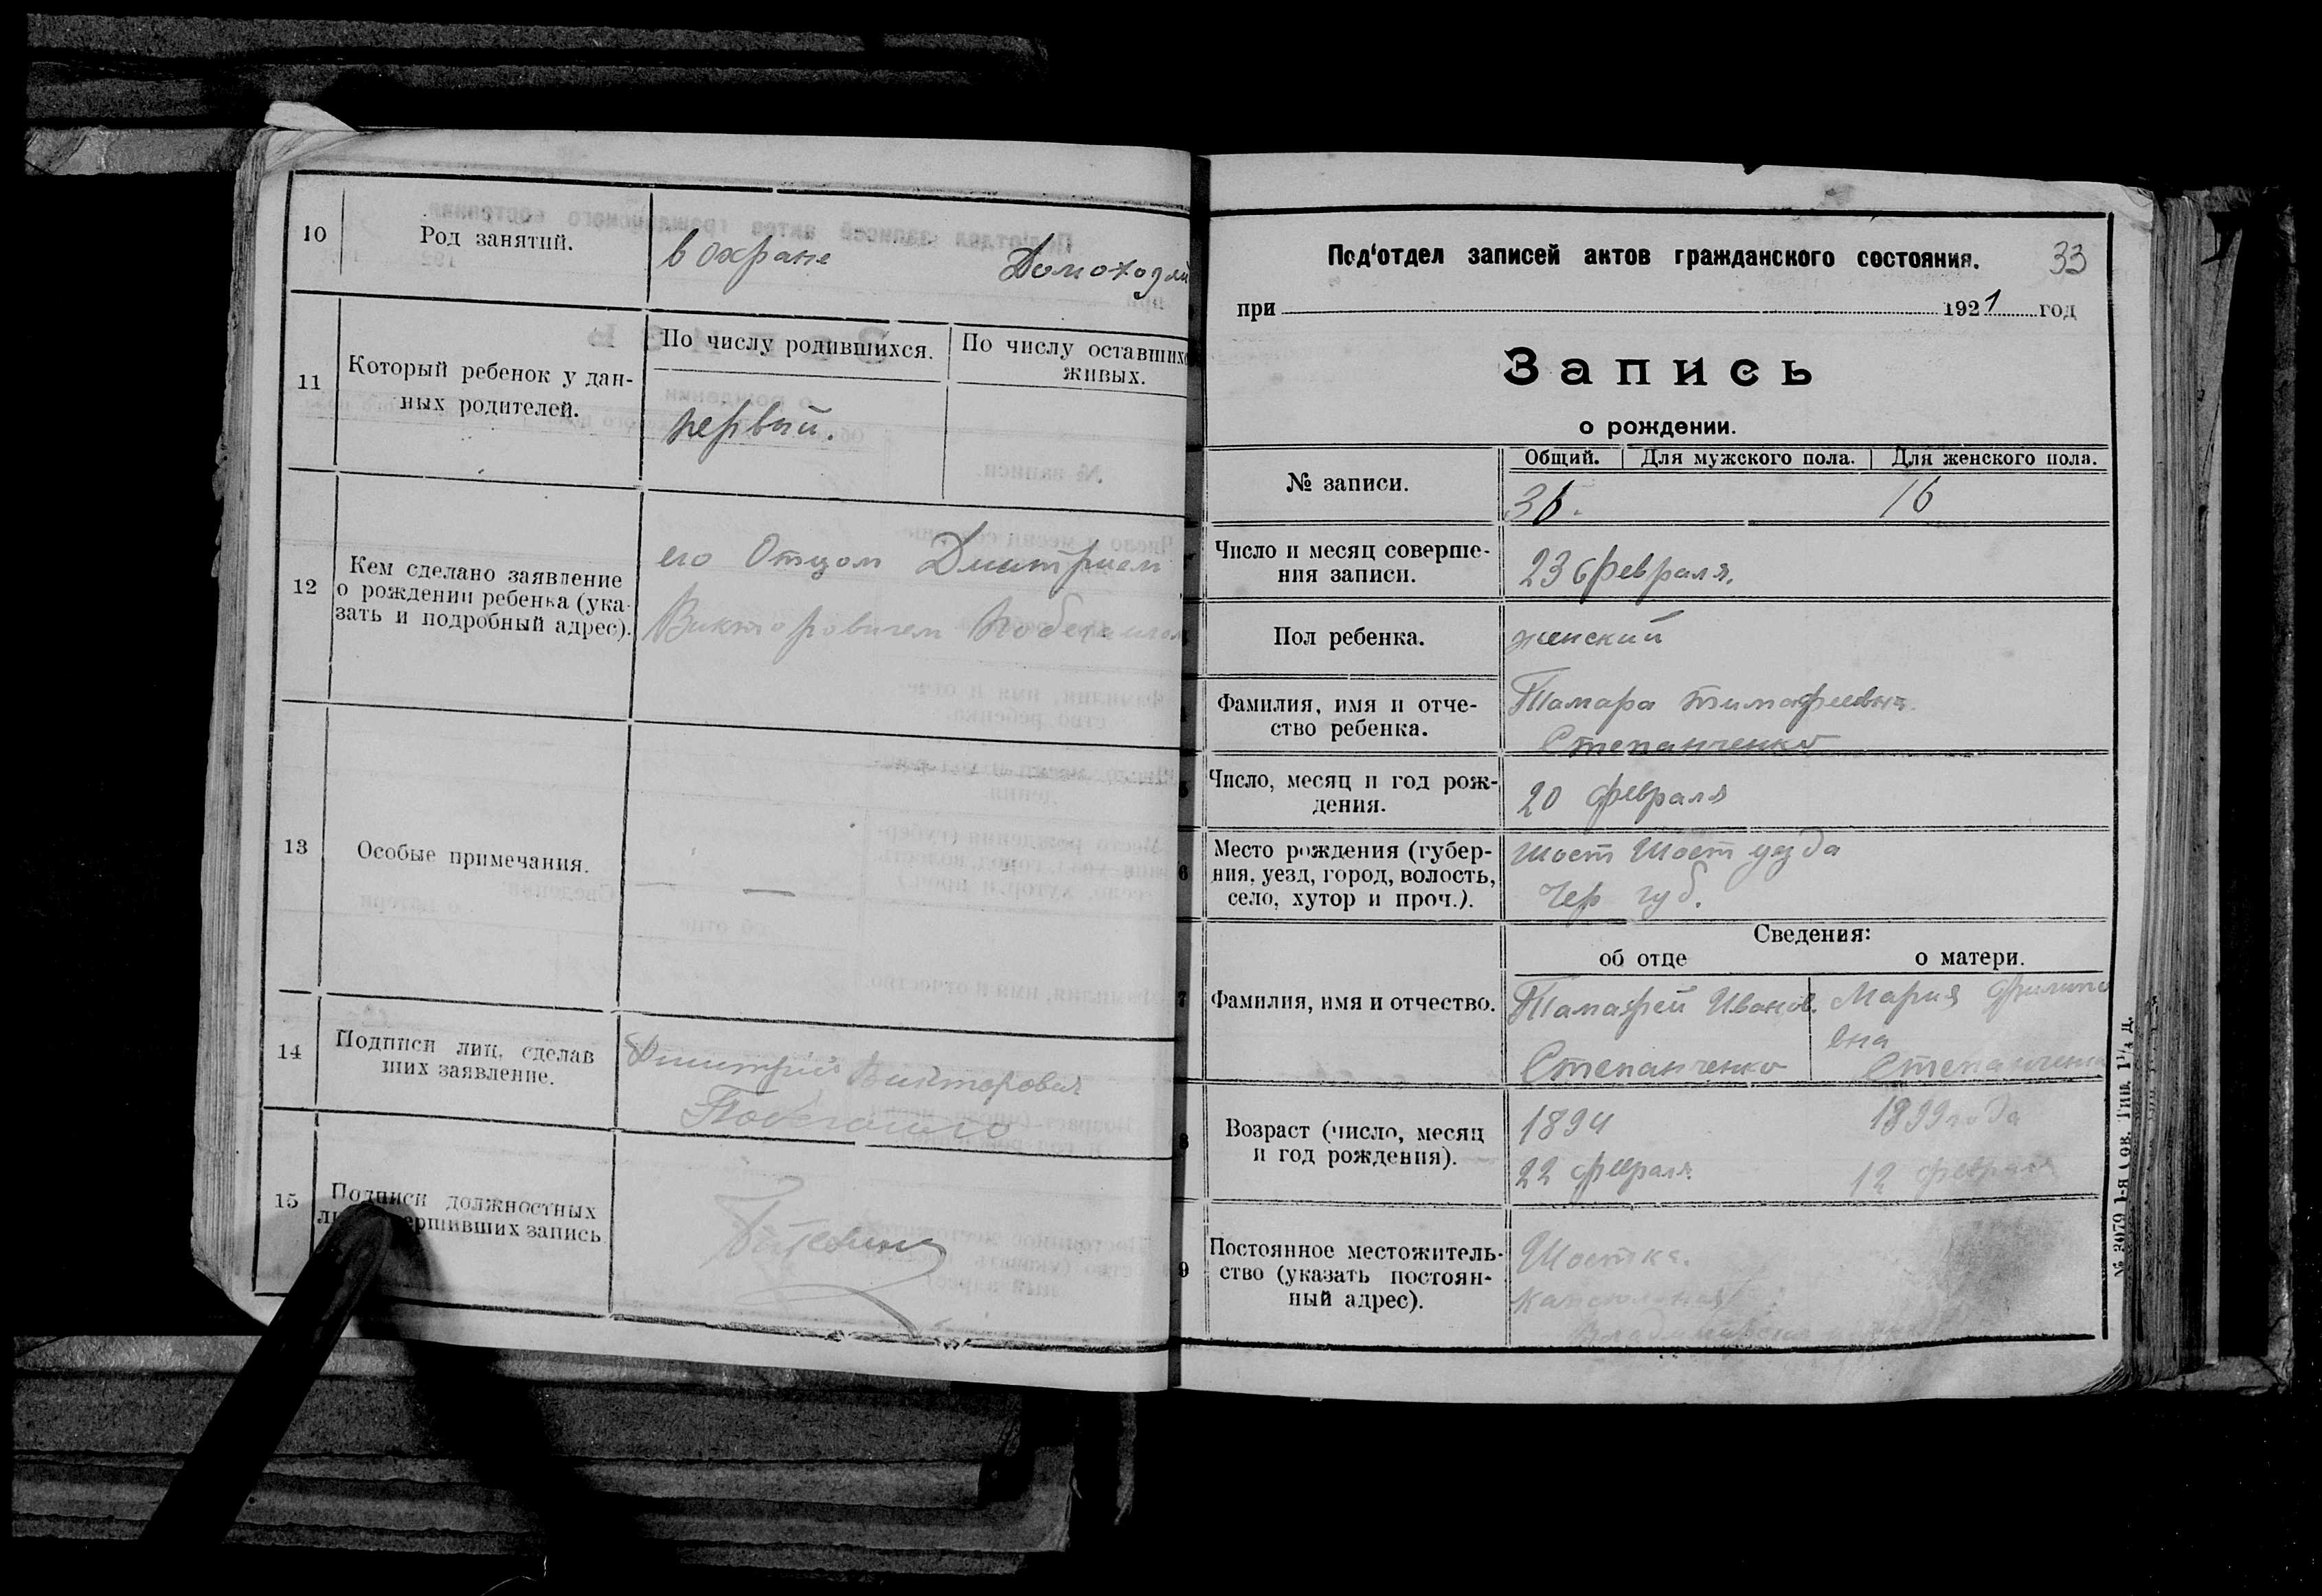 10
Род занятий.
в охране
11
Который ребенок у дан-
ных родителей.
По числу родившихся.
По числу оставших
живых.
первый.
12
Кем сделано заявление
о рождении ребенка (ука-
зать и подробный адрес).
его Отцом Дмитрием
Викторовичем
13
Особые примечания.
—
14
Подписи лиц, сделав
ших заявление.
Дмитрий Викторович
15
Подписи должностных
вершивших запись
Под‘отдел записей актов гражданского состояния.
33
при 1921 год
Запись
о рождении.
№ записи.
Общий. Для мужского пола. Для женского пола.
36. 16
Число и месяц соверше-
ния записи.
23 февраля.
Пол ребенка.
женский
Фамилия, имя и отче-
ство ребенка.
Тамара Тимофеевна
Степанченко
5
Число, месяц и год рож-
дения.
20 февраля
6
Место рождения (губер-
ния, уезд, город, волость,
село, хутор и проч.).
Шост Шост уезда
Чер губ.
Сведения:
об отце
о матери.
7
Фамилия, имя и отчество.
Тамафей Иванов.
Степанченко
Мария Филипо
вна
Степанченко
8
Возраст (число, месяц
и год рождения).
1894
22 февраля.
1899 года
12 февраля
9
Постоянное местожитель-
ство (указать постоян-
ный адрес).
Шостка.
№ 3079 1-я Сов. Тип. 1¼ д.